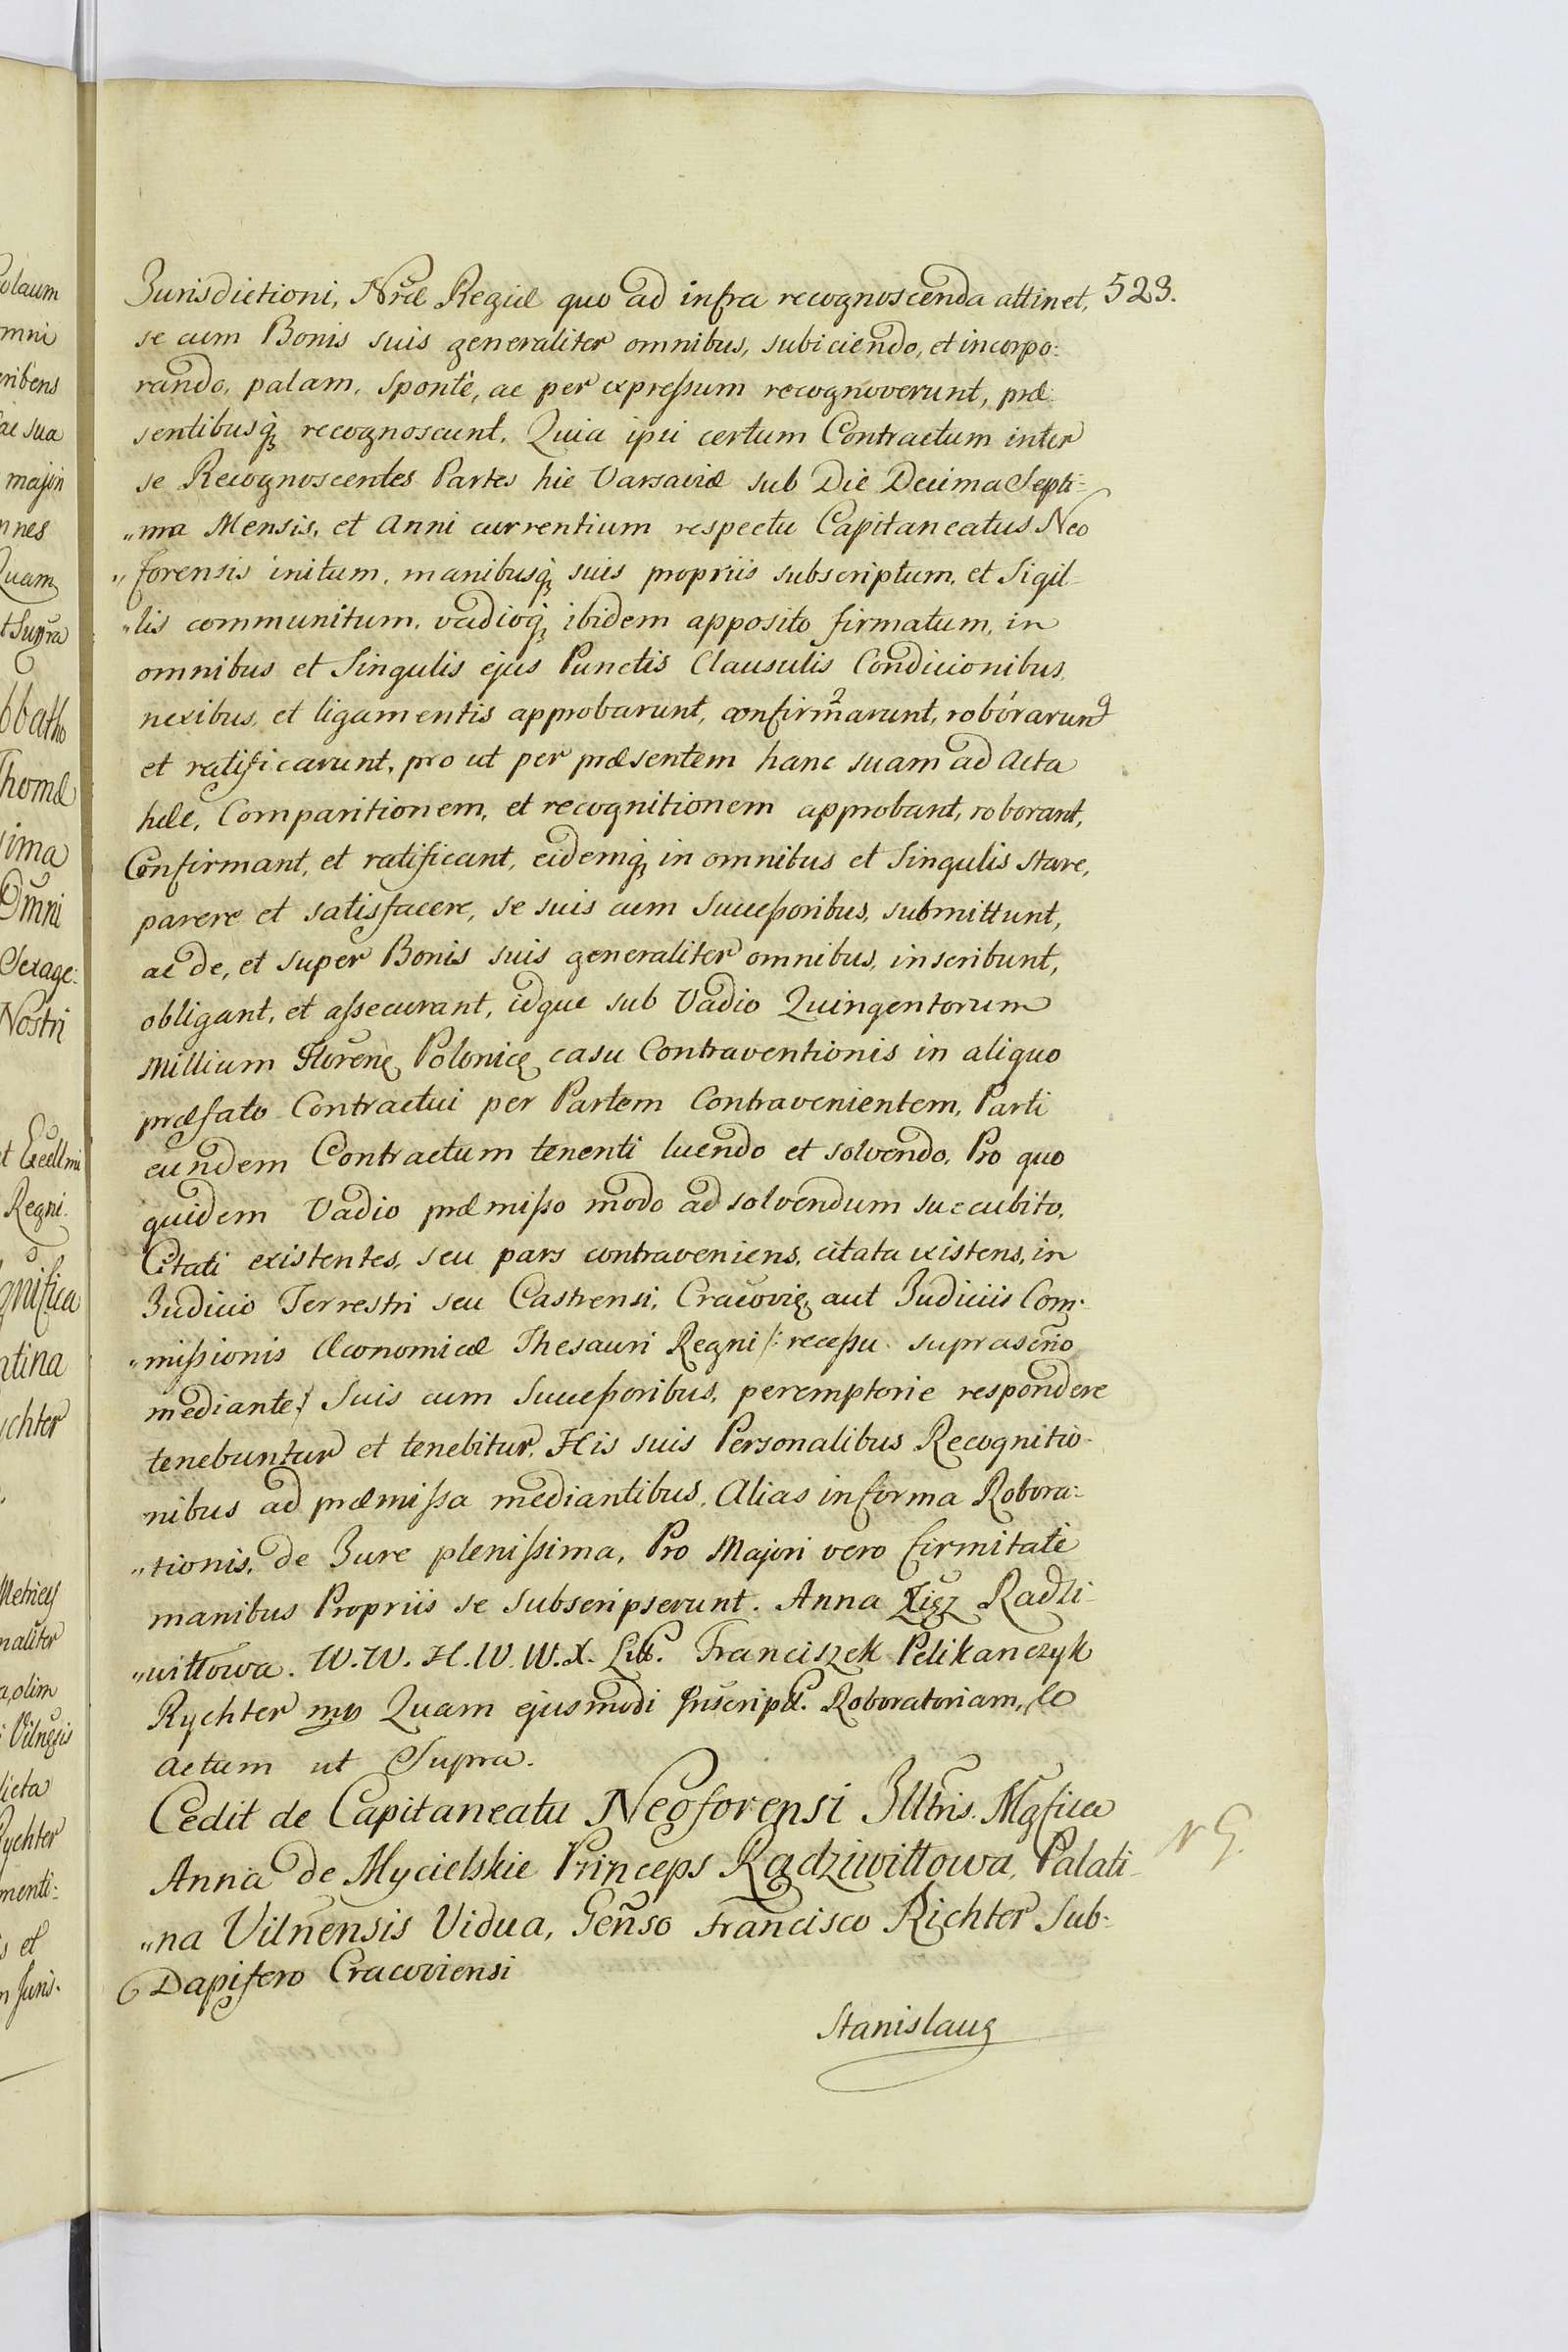 523.
Jurisdictioni, Nræ Regiæ quo ad infra recognoscenda attinet,
se cum Bonis suis generaliter omnibus, subiciendo, et incorpo:
rando, palam, Spontè, ac per expressum recognoverunt, præ
sentibusq3 recognoscunt, Quia ipsi certum Contractum inter
se Recognoscentes Partes hic Varsaviæ sub Die Decima Septi-
„ma Mensis, et Anni currentium respectu Capitaneatus Neo
„forensis initum, manibusq3 suis propriis subscriptum, et Sigil-
„lis communitum, vadioq3 ibidem apposito firmatum, in
omnibus et Singulis ejus Punctis Clausulis Condicionibus,
nexibus, et ligamentis approbarunt, confirmarunt, roborarunt
et ratificarunt, pro ut per præsentem hanc suam ad Acta
hæc, Comparitionem, et recognitionem approbant, roborant,
Confirmant, et ratificant, eidemq3 in omnibus et Singulis stare,
parere et satisfacere, se suis cum Successoribus, submittunt,
ac de, et super Bonis suis generaliter omnibus, inscribunt,
obligant, et assecurant, idque sub Vadio Quingentorum
Millium Floreng Polonicg casu Contraventionis in aliquo
præfato Contractui per Partem Contravenientem, Parti
eundem Contractum tenenti luendo et solvendo, Pro quo
quidem Vadio præmisso modo ad solvendum succubito,
Citati existentes, seu pars contraveniens, citata existens, in
Judicio Terrestri seu Castrensi, Cracovię, aut Judiciis Com-
„missionis Œconomicæ Thesauri Regni /: recessu suprascrio
mediante :/ Suis cum Successoribus, peremptorie respondere
tenebuntur et tenebitur, His suis Personalibus Recognitio-
nibus ad præmissa mediantibus. Alias in forma Robora:
„tionis, de Jure plenissima, Pro Majori vero firmitate
manibus Propriis se Subscripserunt. Anna Xięz Radzi-
„wiłłowa. W. W. H. W. W. X. Litt. Franciszek Pelikanczyk
Rychter mp Quam ejusmodi Inscript. Roboratoriam, &c
Actum ut Supra.
Cedit de Capitaneatu Neoforensi Illtris. Mgfica
Anna de Mycielskie Princeps Radziwiłłowa, Palati-
„na Vilnensis Vidua, Genso Francisco Richter Sub-
Dapifero Cracoviensi
N 9.
Stanislaus